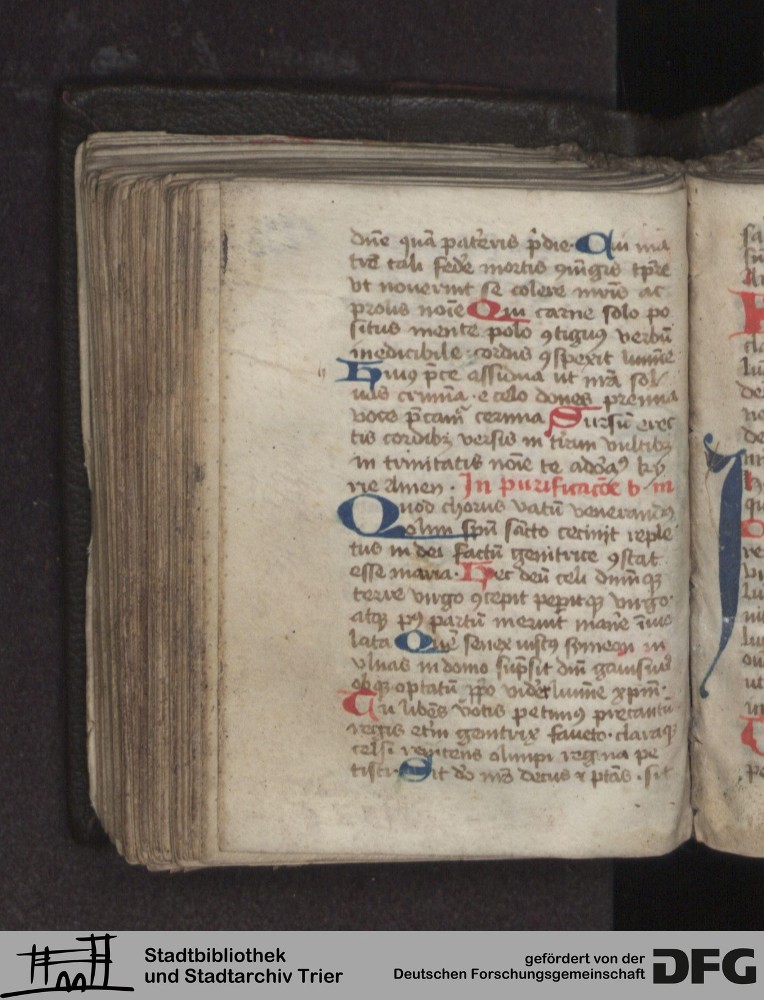 dn̄e quā pateris p̄die. Qui ma
trē tali fede mortis ꝯiūgis tp̄re
vt noverint se colere
prolis noīe Qui carne solo po
situs mente polo ꝯtiguꝰ verbū
inedicibile cordis ꝯspexit lumīe
Huiuꝰ p̄ce assidua ut nr̄a sol
uas crimīa e celo dones premia
voce p̄cam̄ cernua Sursū erec
tis cordibꝫ versis in vultibꝫ
in trinitatis noīe te ky
rie Amen. In purificacōe b m
Quod chorus vatū venerandꝰ
olim spū sācto cecinit reple
tus in dei factū genitrice ꝯstat
esse maria. Hec deū celi dnūmqꝫ
terre virgo ꝯcepit peperitqꝫ virgo.
atqꝫ pꝰ partū meruit manē īuio
lata Quē senex iustꝰ symeon in
vlnas in domo sūpsit dnī gauisus
ob qꝫ optatū ꝓpo lumīe xp̄m.
Tu libēs votis petimꝰ precantū
regis etn̄i genitrix faueto. claraqꝫ
celsi renitens olimpi regina pe
tisti. Sit dō nr̄o decus ⁊ ptās. sit
Stadtbibliothek
und Stadtarchiv Trier
gefördert von der
Deutschen Forschungsgemeinschaft
DFG